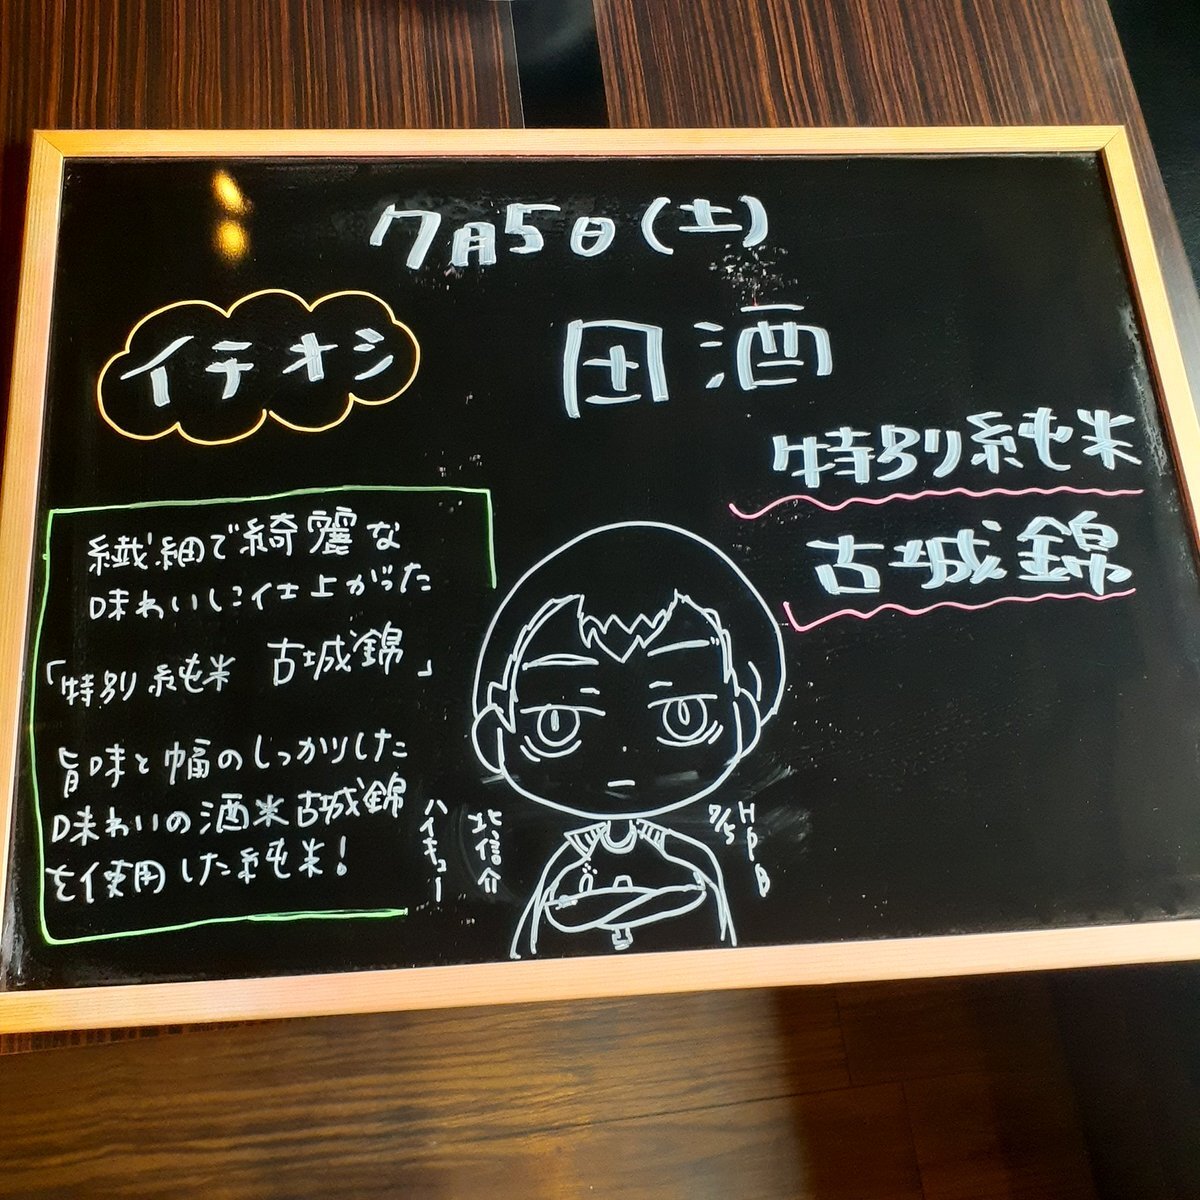 7月5日(土)
イチオシ
田酒
特別純米
古城錦
繊細で綺麗な
味わいに仕上がった
「特別純米 古城錦」
旨味と幅のしっかりした
味わいの酒米古城錦
を使用した純米!
ハイキュー
北信介
HPB
7/5